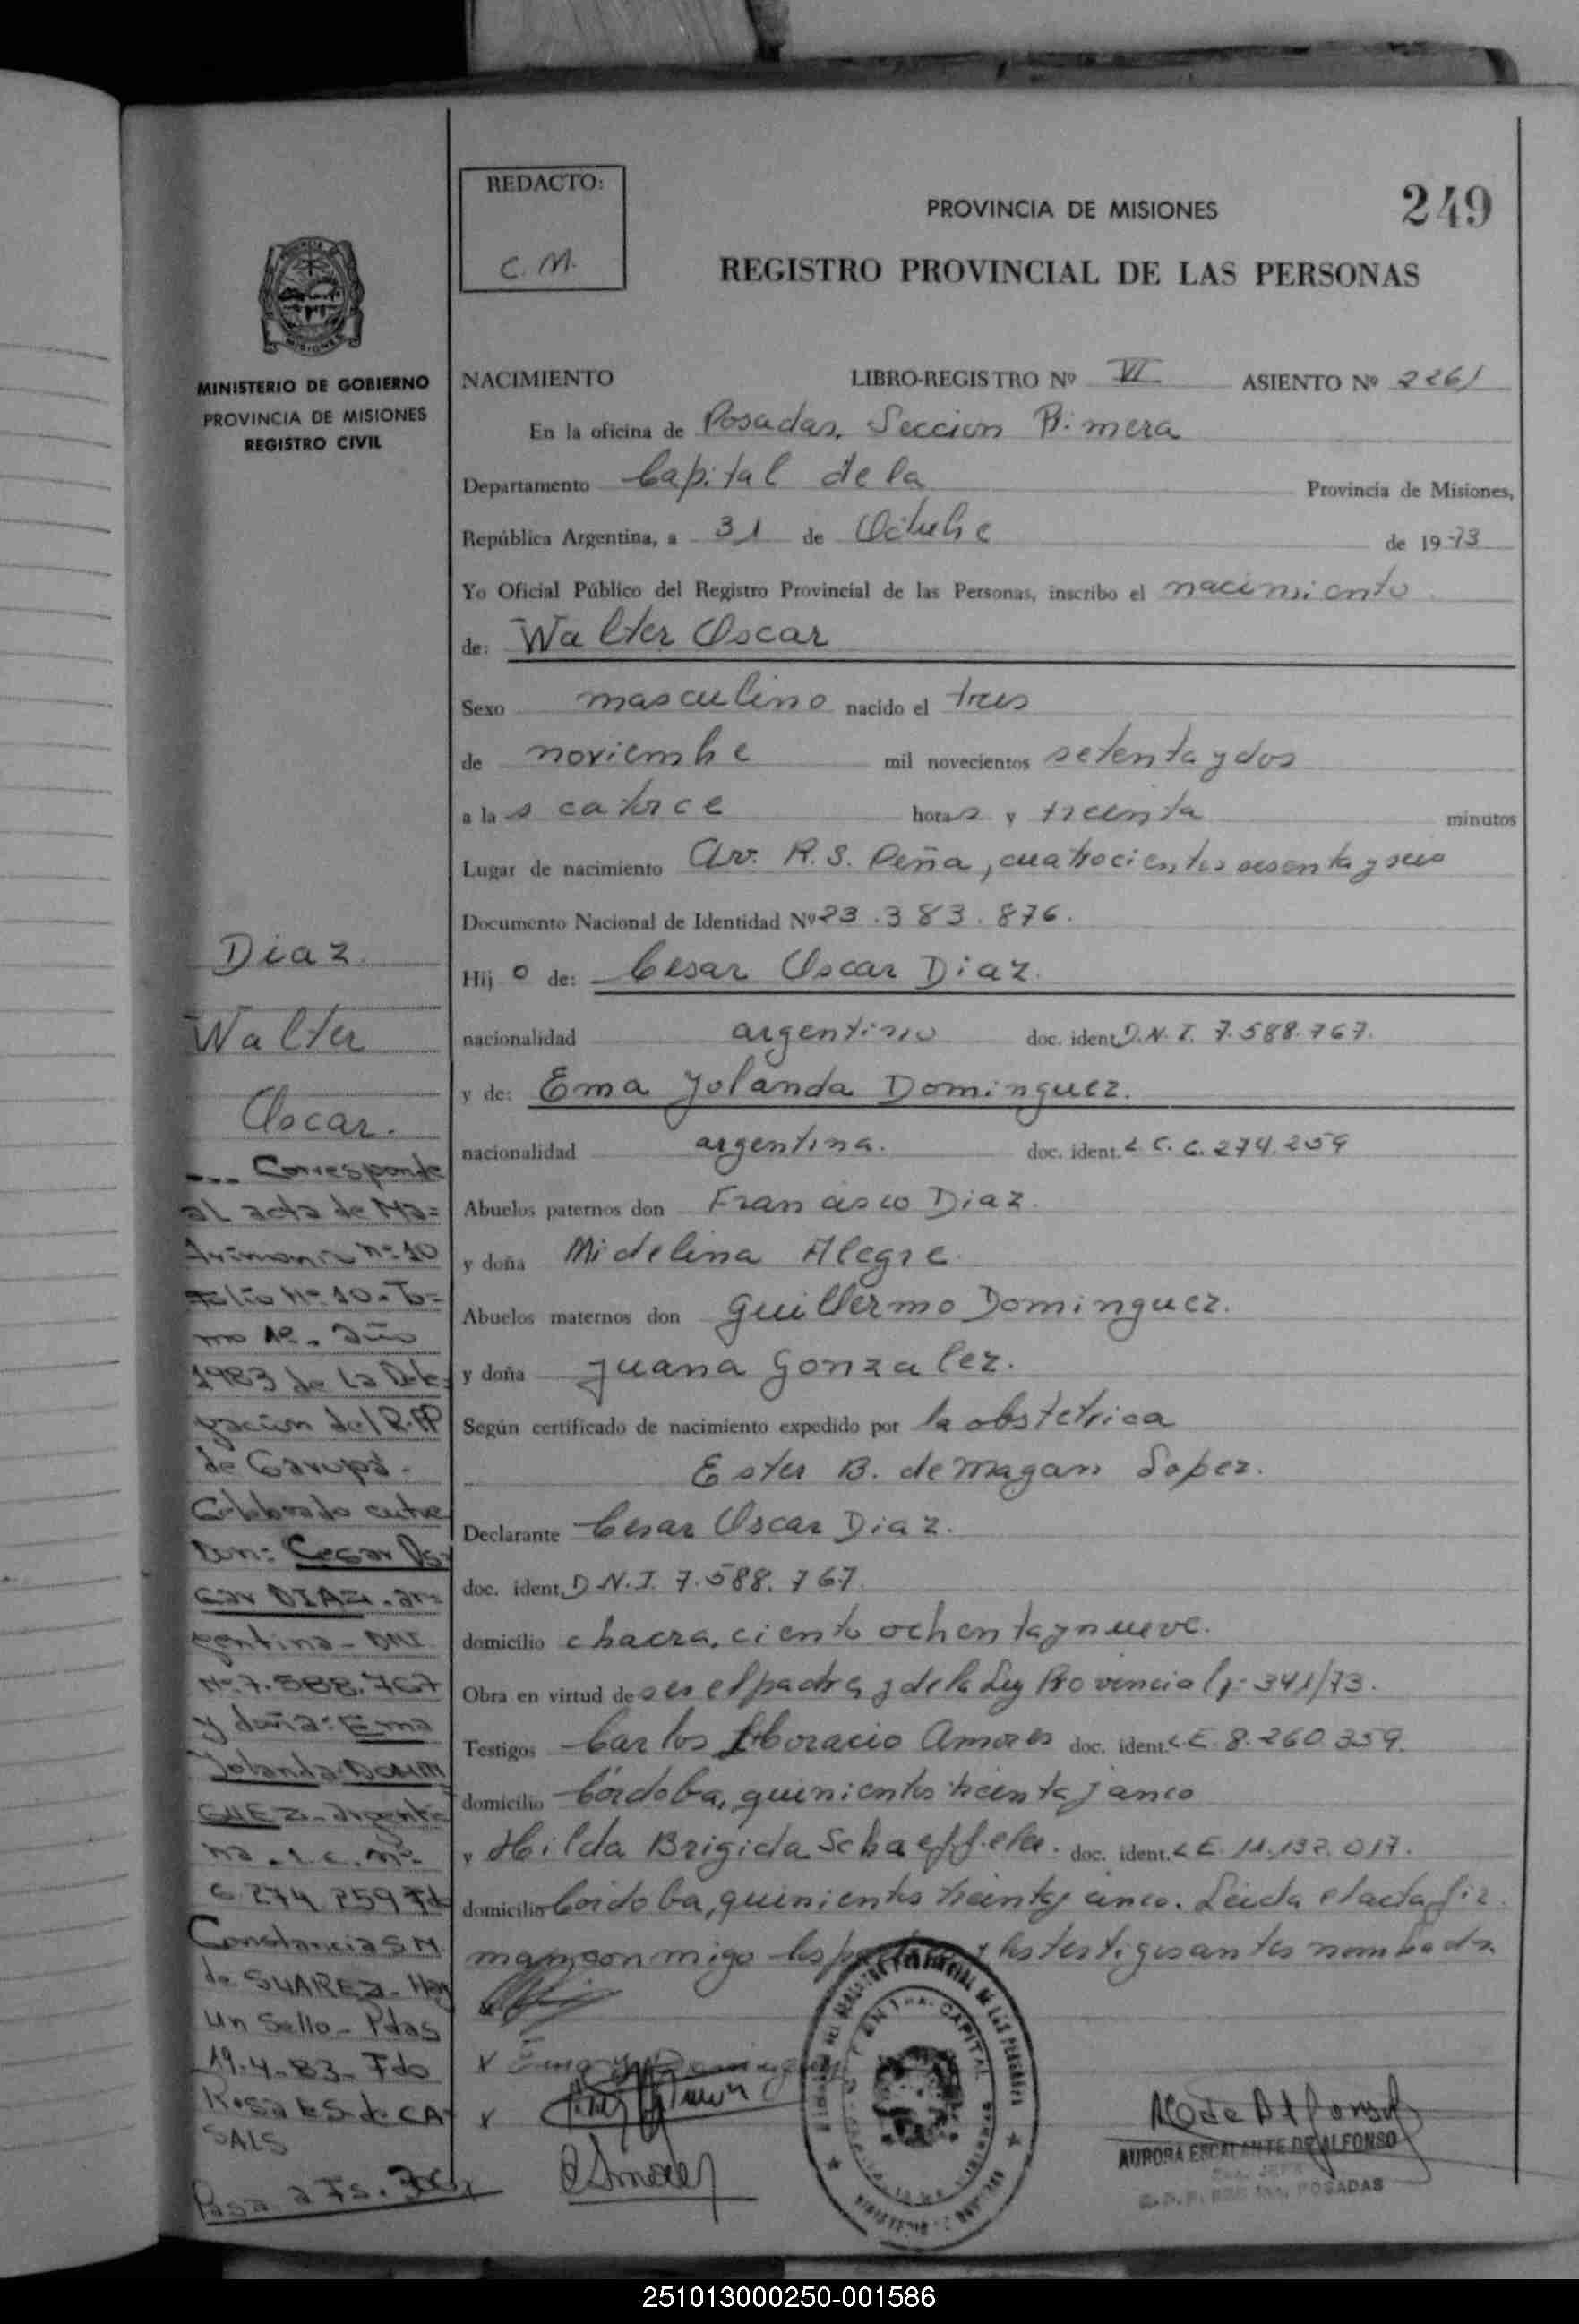 249
REDACTO:
C. M.
PROVINCIA DE MISIONES
REGISTRO PROVINCIAL DE LAS PERSONAS
MINISTERIO DE GOBIERNO
PROVINCIA DE MISIONES
REGISTRO CIVIL
NACIMIENTO LIBRO-REGISTRO Nº VI ASIENTO Nº 2261
En la oficina de Posadas, Seccion Primera
Departamento Capital de la Provincia de Misiones,
República Argentina, a 31 de Octubre de 1973
Yo Oficial Público del Registro Provincial de las Personas, inscribo el nacimiento
de: Walter Oscar
Sexo masculino nacido el tres
de noviembre mil novecientos setenta y dos
a las catorce horas y treinta minutos
Lugar de nacimiento Av. R. S. Peña, cuatrocientos sesenta y seis
Documento Nacional de Identidad Nº 23.383.876.
Hijo de: Cesar Oscar Diaz.
nacionalidad argentino doc. ident. D.N.I. 7.588.767.
y de: Ema Yolanda Dominguez.
nacionalidad argentina. doc. ident. L.C. 6.274.259
Abuelos paternos don Francisco Diaz.
y doña Midelina Alegre.
Abuelos maternos don Guillermo Dominguez.
y doña Juana Gonzalez.
Según certificado de nacimiento expedido por la obstetrica
Ester B. de Magan Lopez.
Declarante Cesar Oscar Diaz.
doc. ident. D.N.I. 7.588.767.
domicilio chacra, ciento ochenta y nueve.
Obra en virtud de ser el padre y de la Ley Provincial 341/73.
Testigos Carlos Horacio Amores doc. ident. L.E. 8.260.359.
domicilio Córdoba, quinientos treinta y cinco
y Hilda Brigida doc. ident. L.E. 11.132.017.
domicilio Córdoba, quinientos treinta y cinco. Leida el acta fir
man conmigo los padres y los testigos antes nombrados
Diaz.
Walter
Oscar.
... Corresponde
al acta de Ma=
trimonio nº 10
Folio Nº 10. To=
mo 1º. año
1983 de la Dele
gación del R.P.P
de Garupá.
Celebrado entre
Don: Cesar Os=
car DIAZ. ar=
gentino - DNI
Nº 7.588.767
y doña: Ema
Yolanda DOMIN
GUEZ. argenti
na. L.C. Nº
6.274.259 Fdo
Constancia S.M.
de SUAREZ. Hay
un Sello. Pdas
19-4-83. Fdo
Rosa E S. de CA
SALS
Pasa a Fs.
CENTRAL CAPITAL
AURORA ESCALANTE DE ALFONSO
POSADAS
251013000250-001586